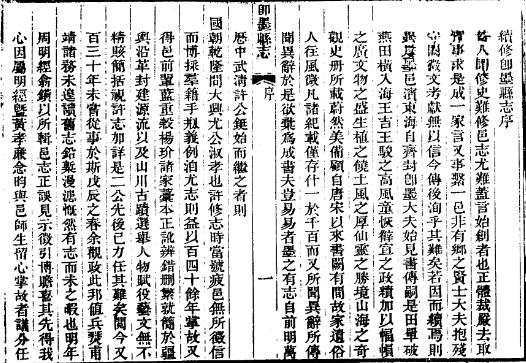 續修即墨縣志序
昔人謂修史難修邑志尤難蓋言始創者也正體裁嚴去取
實事求是成一家言又事繫一邑非有鄉之賢士大夫抱殘
守闕徵文考獻無以信今傳後洵乎其難矣若因而續焉則
異是墨邑濱東海自齊封即墨大夫始見書傳嗣是田單破
燕田橫入海王吉王駿之高風童恢僻宣之政績加以幅幀
之廣文物之盛生植之饒土風之厚仙靈之勝境山海之奇
觀史册所載蔚然美備顧自唐宋以來書闕有間故家遺俗
人往風微凡諸紀載僅存什一於千百而又所聞異辭所傳
聞異辭於是欲彙為成書夫豈易易者墨之有志自前明萬
即墨縣志 序 一
歷中武清許公鋌始而繼之者則
國朝乾隆間大興尤公淑孝也許修志時當號疲邑無所徵信
而博採羣籍手甄義例洎尤志則益以百四十餘年掌故又
得邑前輩藍重穀楊玠諸家藁本正訛辨錯刪繁就簡於疆
輿沿革封建源流以及山川古蹟選舉人物賦役藝文無不
精賅簡括視許志加詳是二公先後已力任其難矣閱今又
百三十年未嘗從事於斯戊辰之春余觀政此邦值兵燹甫
靖諸務未遑續舊志鉛槧漫漶慨然有志而未之暇也明年
周明經翕鐄以所輯邑志正誤見示徵引博贍喜其先得我
心因屬明經暨黃孝廉念昀與邑師生留心掌故者議分任